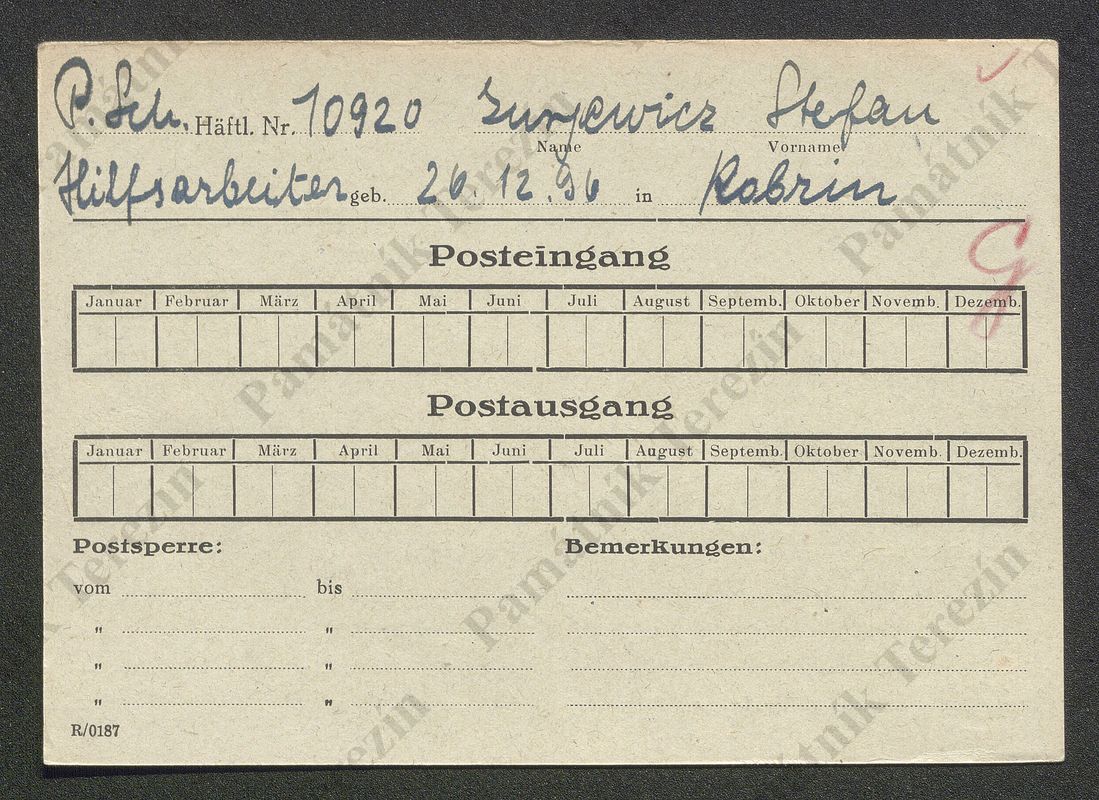 P. Sch. Häftl. Nr. 10920 Zurjewicz Stefan
Name Vorname
Hilfsarbeiter geb. 26.12.96 in Kobrin
Posteingang
Januar Februar März April Mai Juni Juli August Septemb. Oktober Novemb. Dezemb.
Postausgang
Januar Februar März April Mai Juni Juli August Septemb. Oktober Novemb. Dezemb.
Postsperre: Bemerkungen:
vom bis
" "
" "
" "
R/0187
Památník Terezín